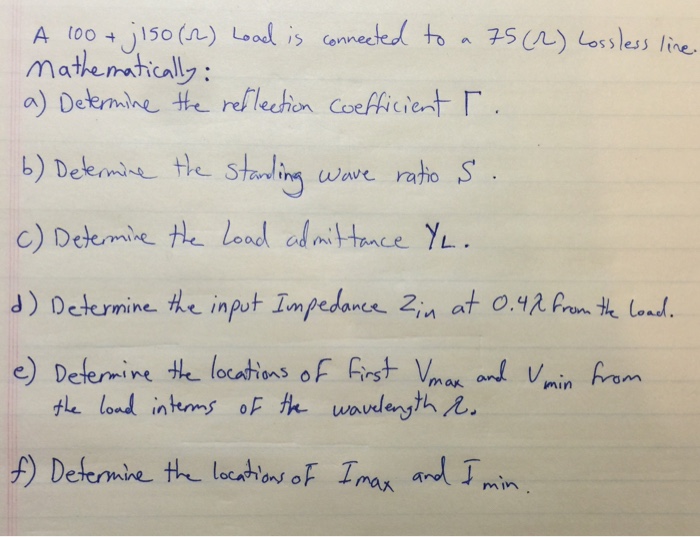 A 100 + j150 (Ω) Load is connected to a 75 (Ω) Lossless line.
Mathematically:
a) Determine the reflection coefficient Γ.
b) Determine the standing wave ratio S.
c) Determine the load admittance YL.
d) Determine the input Impedance Zin at 0.4λ from the load.
e) Determine the locations of first Vmax and Vmin from
the load interms of the wavelength λ.
f) Determine the locations of Imax and Imin.